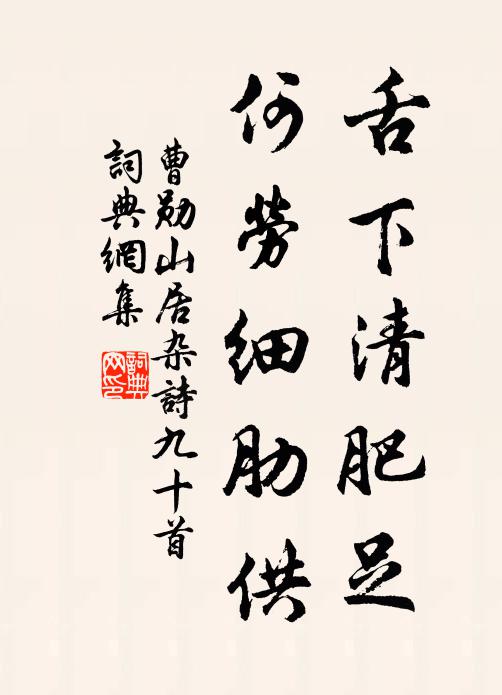 舌下清肥足
何勞細肋供
曹勛山居杂詩九十首
詞典網集
詞典網印